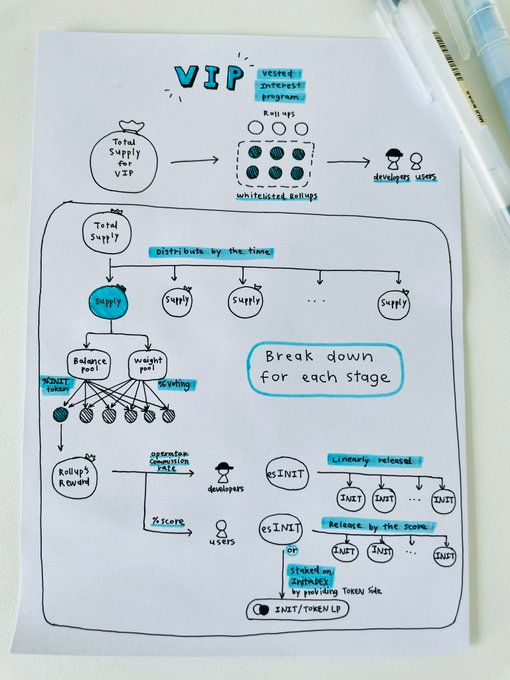 VIP
Vested
Interest
program
Rollups
Total
Supply
for
VIP
developers users
whitelisted Rollups
Total
Supply
Distribute by the time
Supply
Supply
Supply
...
Supply
Break down
for each stage
Balance
pool
Weight
pool
%INIT
token
%Voting
Rollup's
Reward
operator
Commission
rate
developers
esINIT
Linearly released
INIT
INIT
...
INIT
%score
users
esINIT
Release by the score
INIT
INIT
...
INIT
or
Staked on
InitiaDEX
by providing TOKEN side
INIT/TOKEN LP